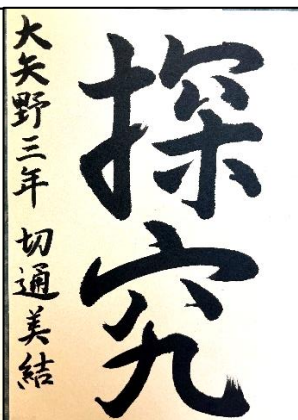 探究
大矢野三年 切通美結